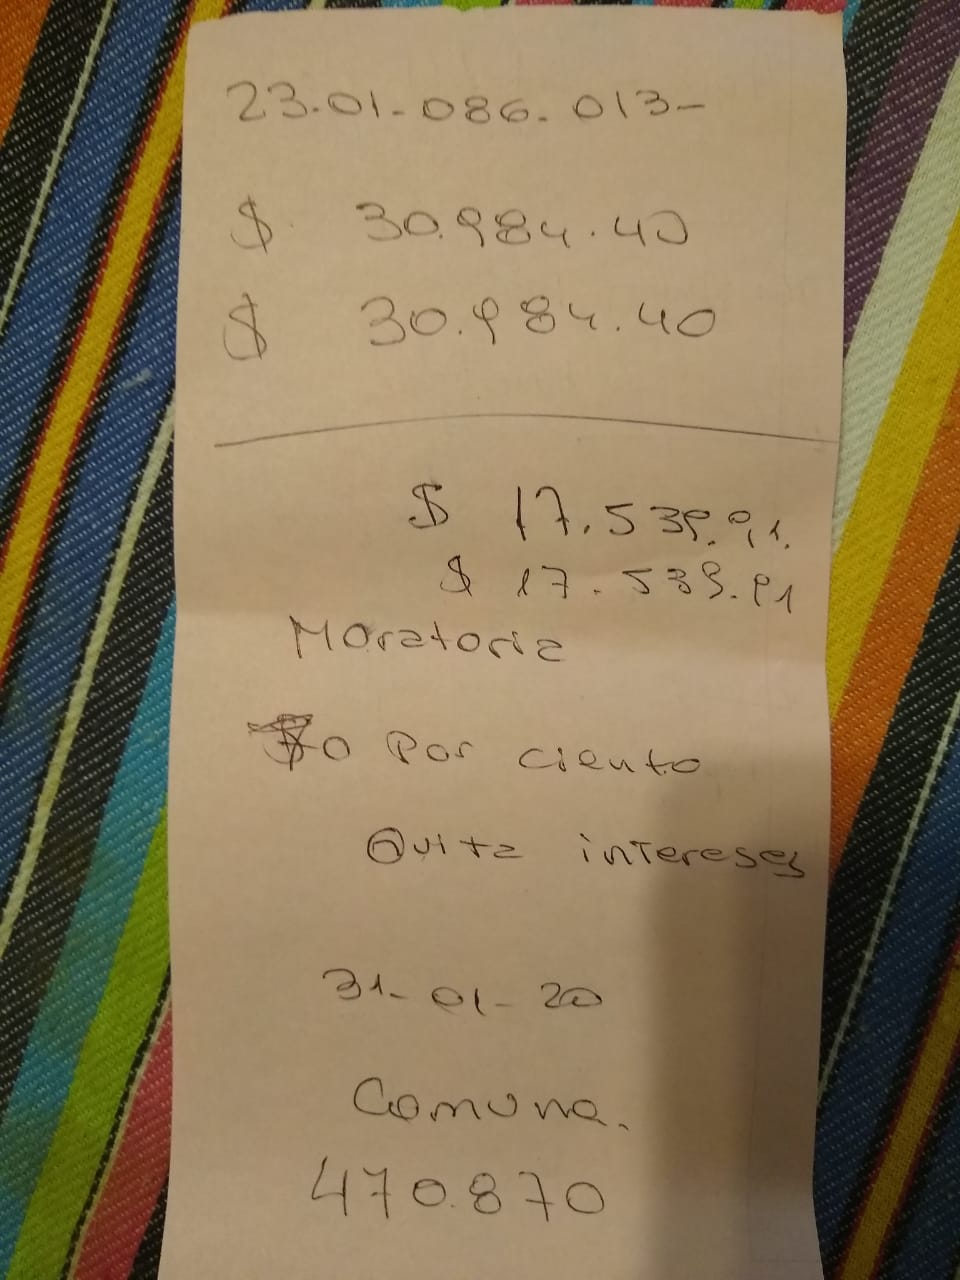 23.01-086.013-
$ 30.984.40
$ 30.984.40
$ 17.539.91.
$ 17.539.91
Moratoria
Por ciento
Quita intereses
31-01-20
Comuna.
470.870